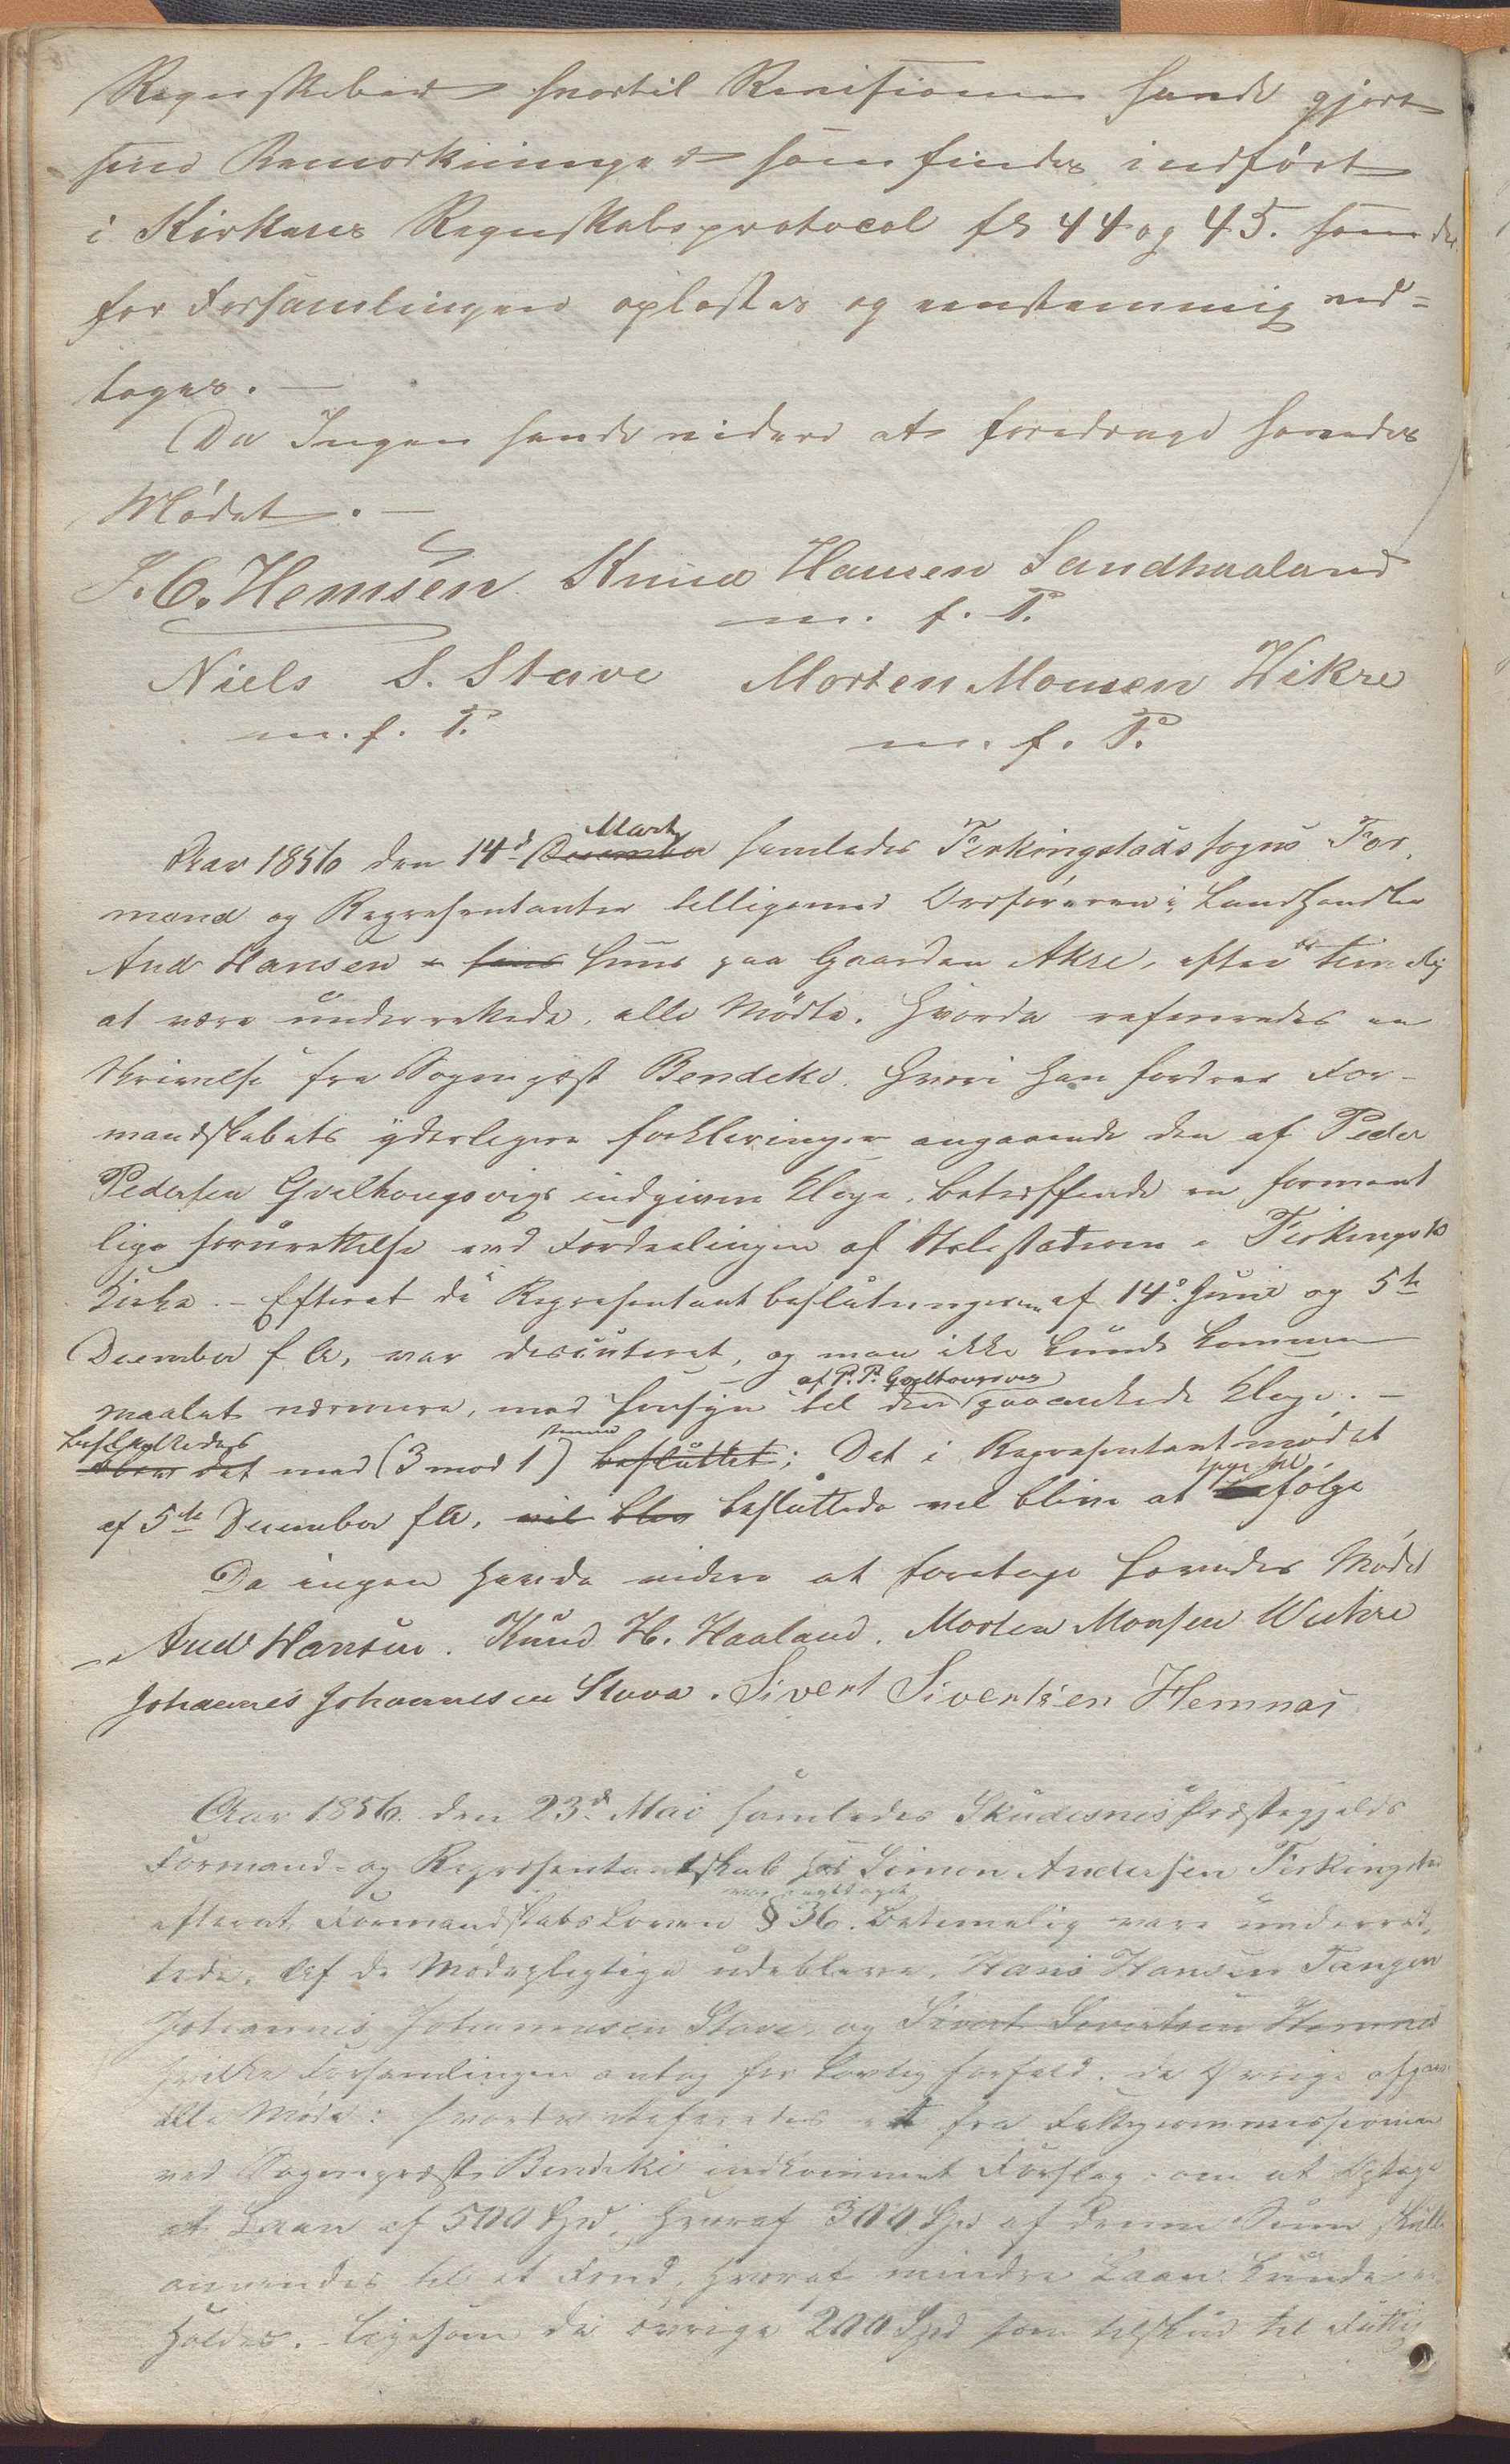 Regnskabet hvortil Revisionen havde gjort
sine Bemærkninger som findes indført
i Kirkens Regnskabsprotocol fs 44 og 45. som der
for Forsamlingen oplæstes og eenstemmig ved=
toges. —
Da Ingen havde videre at foredrage hævedes
Mødet. —
J. C. Hemsen Knud Hansen Sandhaaland
m. f. P.
Niels S. Stave Morten Monsen Wikre
m. f. P. m. f. P.
Aar 1856 den 14d Marts December samledes Ferkingstads sogns For,
mænd og Repræsentanter tilligemed Ordføreren i Landhandler
And Hansen sins Huus paa Gaarden Akre, efter timelig
at være underrettede, alle Mødte. Hvorda refereredes en
Skrivelse fra Sogneprest Bendeke. Hvori han fordrer For-
mandskabets yderligere forklaringer angaaende den af Peder
Pedersen Gvalhougsvigs indgivne Klage, betreffende en forment
lige forurettelse ved Fordeelingen af Stolestaderne i Ferkingst
Kirke. — Efterat de Repræsentantbeslutningerne af 14de Juni og 5te
December f. A, var discuteret, og man ikke kunde komme
maalet nærmere, med hensyn til den af P. P. Gvalhougsvigs paaankede Klage. —
besluttedes blev det med (3 mod 1) stemme besluttet; Det i Repræsentantmødet
af 5te December f. A, vil blev besluttede vil blive at følge
Da ingen havde videre at foretage hævedes Mødet
And Hansen. Knud H. Haaland. Morten Monsen Wickre
Johannes Johannesen Stava. Sivert Sivertsen Hemnæs
Aar 1856. den 23d Mai samledes Skudesnes Præstegjelds
Formand- og Repræsentantskab hos Simon Andersen Ferkingstad
efterat Formandskabs Loven § 36. var iagttaget betimelig vare underret,
tede. Af de Mødepligtige udebleve, Hans Hansen Tangen
Johannis Johannesen Stava, og Sivert Sivertsen Hemnes
hvilke Forsamlingen antog for Lovlig forfald. de Øvrige afgav
alle Møde: hvorda refereredes et fra Fattigcommissionen
ved Sogneprest Bendeke indkommet Forslag om at optage
et Laan af 500 Spd, hvoraf 300 Spd af denne Sum skulle
anvendes til et Fond, hvoraf mindre Laan kunde er-
holdes. — ligesom de øvrige 200 Spd som tilskud til Fattig